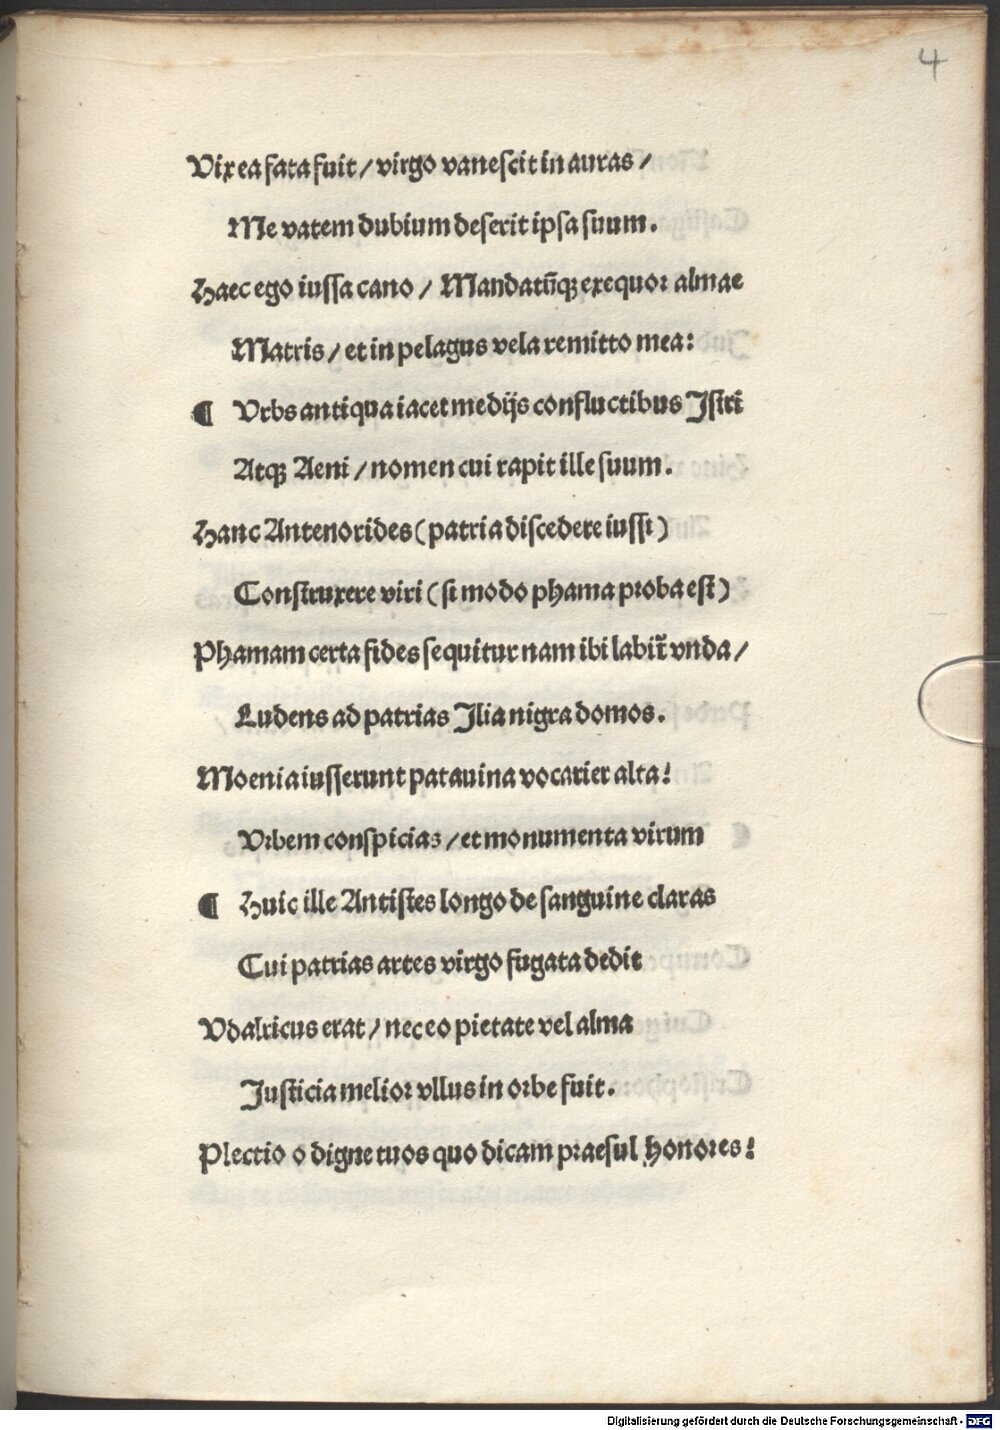 4
Vix ea fata fuit / virgo vanescit in auras /
Me vatem dubium deserit ipsa suum.
Haec ego iussa cano / Mandatūqꝫ exequor almae
Matris / et in pelagus vela remitto mea:
¶ Vrbs antiqua iacet medijs confluctibus Istri
Atqꝫ Aeni / nomen cui rapit ille suum.
Hanc Antenorides (patria discedere iussi)
Construxere viri (si modo phama proba est)
Phamam certa fides sequitur nam ibi labit̃ vnda /
Ludens ad patrias Ilia nigra domos.
Moenia iusserunt patauina vocarier alta!
Vrbem conspicias / et monumenta virum
¶ Huic ille Antistes longo de sanguine claras
Cui patrias artes virgo fugata dedit
Vdalricus erat / nec eo pietate vel alma
Justicia melior vllus in orbe fuit.
Plectio o digne tuos quo dicam praesul honores!
Digitalisierung gefördert durch die Deutsche Forschungsgemeinschaft - DFG